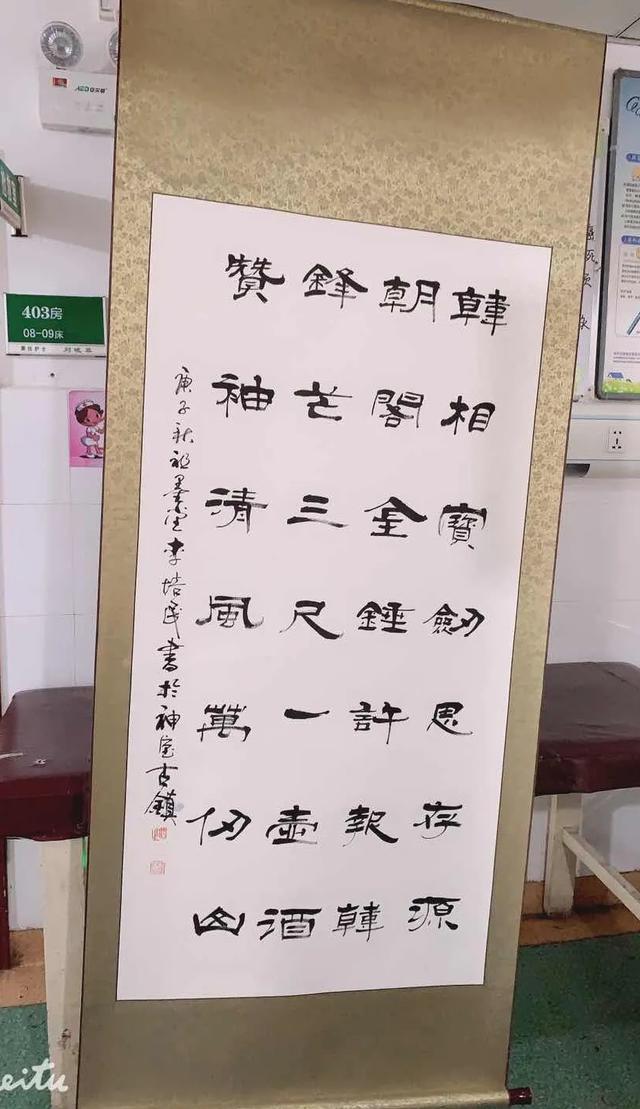 韓相寶劔思存源
朝閣全錘許報韓
鋒芒三尺一壺酒
贊袖清風萬仞山
庚子秋 墨堂李培民書於神垕古鎮
403房
08-09床
责任护士
eitu